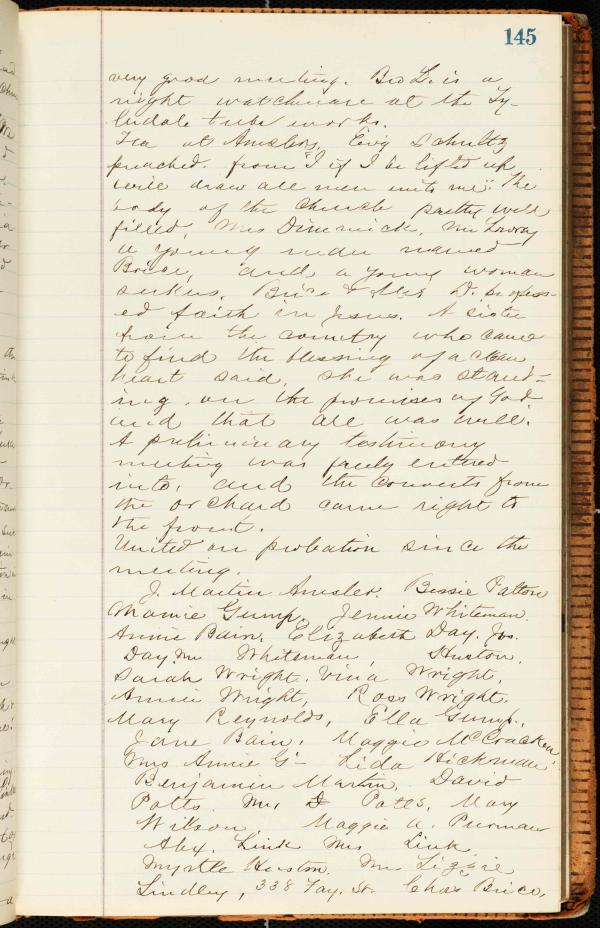 145
very good meeting. Bro L. is a
night watchman at the Ty-
lndale tube works.
Tea at Amslers, Evg Schultz
preached. from "I if I be lifted up
will draw all men unto me". The
body of the Church pretty well
filled, Mrs Dimmick, Mrs
a young man named
Brice, and a young woman
seekers. Brice & Mrs D. profess-
ed faith in Jesus. A sister
from the country who came
to find the blessing of a clean
heart said, she was stand-
ing, on the promises of God
and that all was well.
A preliminary testimony
meeting was freely entered
into, and the converts from
the orchard came right to
the front.
United on probation since the
meeting.
J. Martin Amsler. Bessie Patton
Mamie Gump, Jennie Whiteman.
Annie Bain. Elizabeth Day. Jos.
Day. Mrs Whiteman, Huston,
Sarah Wright. Vina Wright,
Annie Wright, Ross Wright.
Mary Reynolds, Ella Gump.,
Jane Bain. Maggie McCracken
Mrs Annie G- Lida Hickman
Benjamin Martin. David
Potts Mrs D Potts, Mary
Wilson Maggie A. Purman
Alex. Link Mrs Link.
Myrtle Huston. Mrs Lizzie
Lindley, 338 Fay. St. Chas Brice,